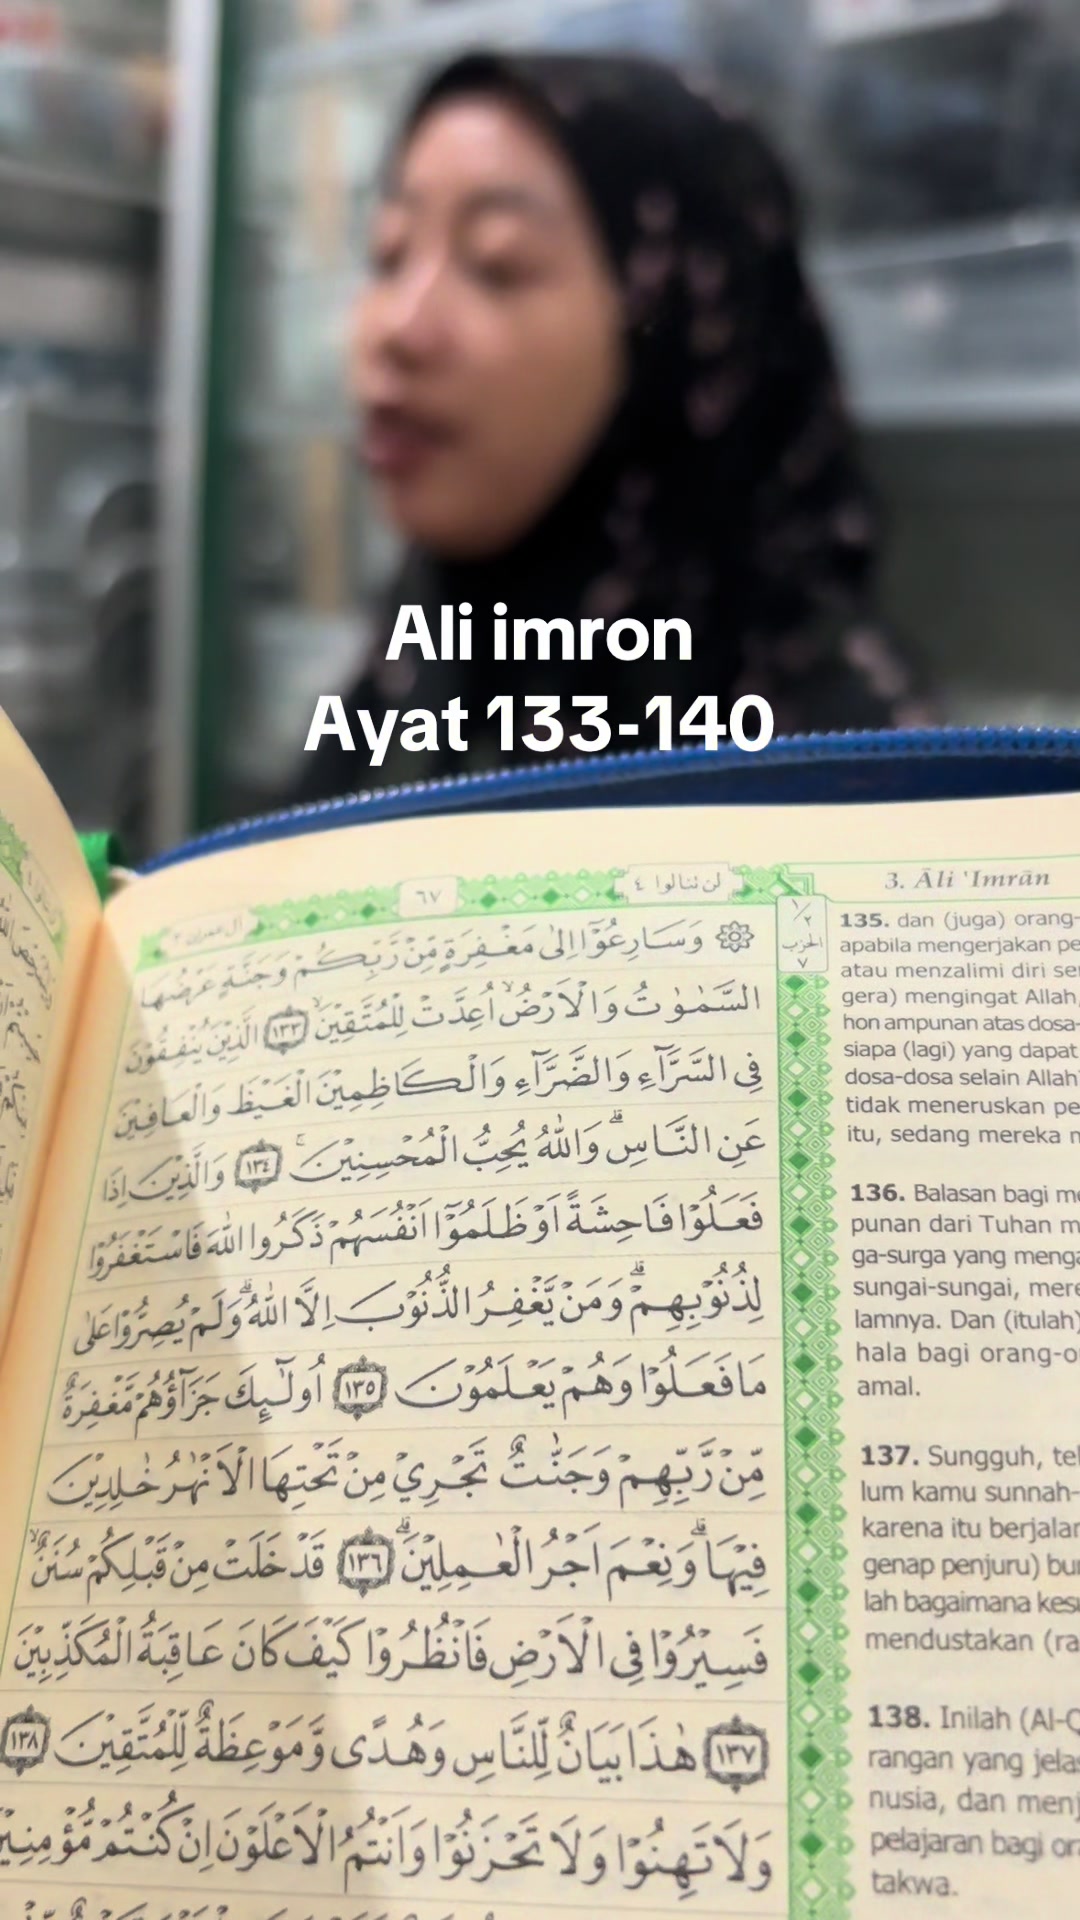 Ali imron
Ayat 133-140
لن تنالوا ٤
٦٧
آل عمران ٣
3. Āli 'Imrān
١/٢
الحزب
٧
۞ وَسَارِعُوْٓا اِلٰى مَغْفِرَةٍ مِّنْ رَّبِّكُمْ وَجَنَّةٍ عَرْضُهَا
السَّمٰوٰتُ وَالْاَرْضُۙ اُعِدَّتْ لِلْمُتَّقِيْنَۙ ١٣٣ الَّذِيْنَ يُنْفِقُوْنَ
فِى السَّرَّاۤءِ وَالضَّرَّاۤءِ وَالْكَاظِمِيْنَ الْغَيْظَ وَالْعَافِيْنَ
عَنِ النَّاسِۗ وَاللّٰهُ يُحِبُّ الْمُحْسِنِيْنَۚ ١٣٤ وَالَّذِيْنَ اِذَا
فَعَلُوْا فَاحِشَةً اَوْ ظَلَمُوْٓا اَنْفُسَهُمْ ذَكَرُوا اللّٰهَ فَاسْتَغْفَرُوْا
لِذُنُوْبِهِمْۗ وَمَنْ يَّغْفِرُ الذُّنُوْبَ اِلَّا اللّٰهُۗ وَلَمْ يُصِرُّوْا عَلٰى
مَا فَعَلُوْا وَهُمْ يَعْلَمُوْنَ ١٣٥ اُولٰۤىِٕكَ جَزَاۤؤُهُمْ مَّغْفِرَةٌ
مِّنْ رَّبِّهِمْ وَجَنّٰتٌ تَجْرِيْ مِنْ تَحْتِهَا الْاَنْهٰرُ خٰلِدِيْنَ
فِيْهَاۗ وَنِعْمَ اَجْرُ الْعٰمِلِيْنَۗ ١٣٦ قَدْ خَلَتْ مِنْ قَبْلِكُمْ سُنَنٌۙ
فَسِيْرُوْا فِى الْاَرْضِ فَانْظُرُوْا كَيْفَ كَانَ عَاقِبَةُ الْمُكَذِّبِيْنَ
١٣٧ هٰذَا بَيَانٌ لِّلنَّاسِ وَهُدًى وَّمَوْعِظَةٌ لِّلْمُتَّقِيْنَ ١٣٨
وَلَا تَهِنُوْا وَلَا تَحْزَنُوْا وَاَنْتُمُ الْاَعْلَوْنَ اِنْ كُنْتُمْ مُّؤْمِنِيْنَ
135. dan (juga) orang-
apabila mengerjakan pe
atau menzalimi diri se
gera) mengingat Allah,
hon ampunan atas dosa-
siapa (lagi) yang dapat
dosa-dosa selain Allah
tidak meneruskan pe
itu, sedang mereka m
136. Balasan bagi me
punan dari Tuhan m
ga-surga yang menga
sungai-sungai, mere
lamnya. Dan (itulah)
hala bagi orang-o
amal.
137. Sungguh, tel
lum kamu sunnah-
karena itu berjalan
genap penjuru) bu
lah bagaimana kes
mendustakan (ra
138. Inilah (Al-Q
rangan yang jelas
nusia, dan menj
pelajaran bagi or
takwa.